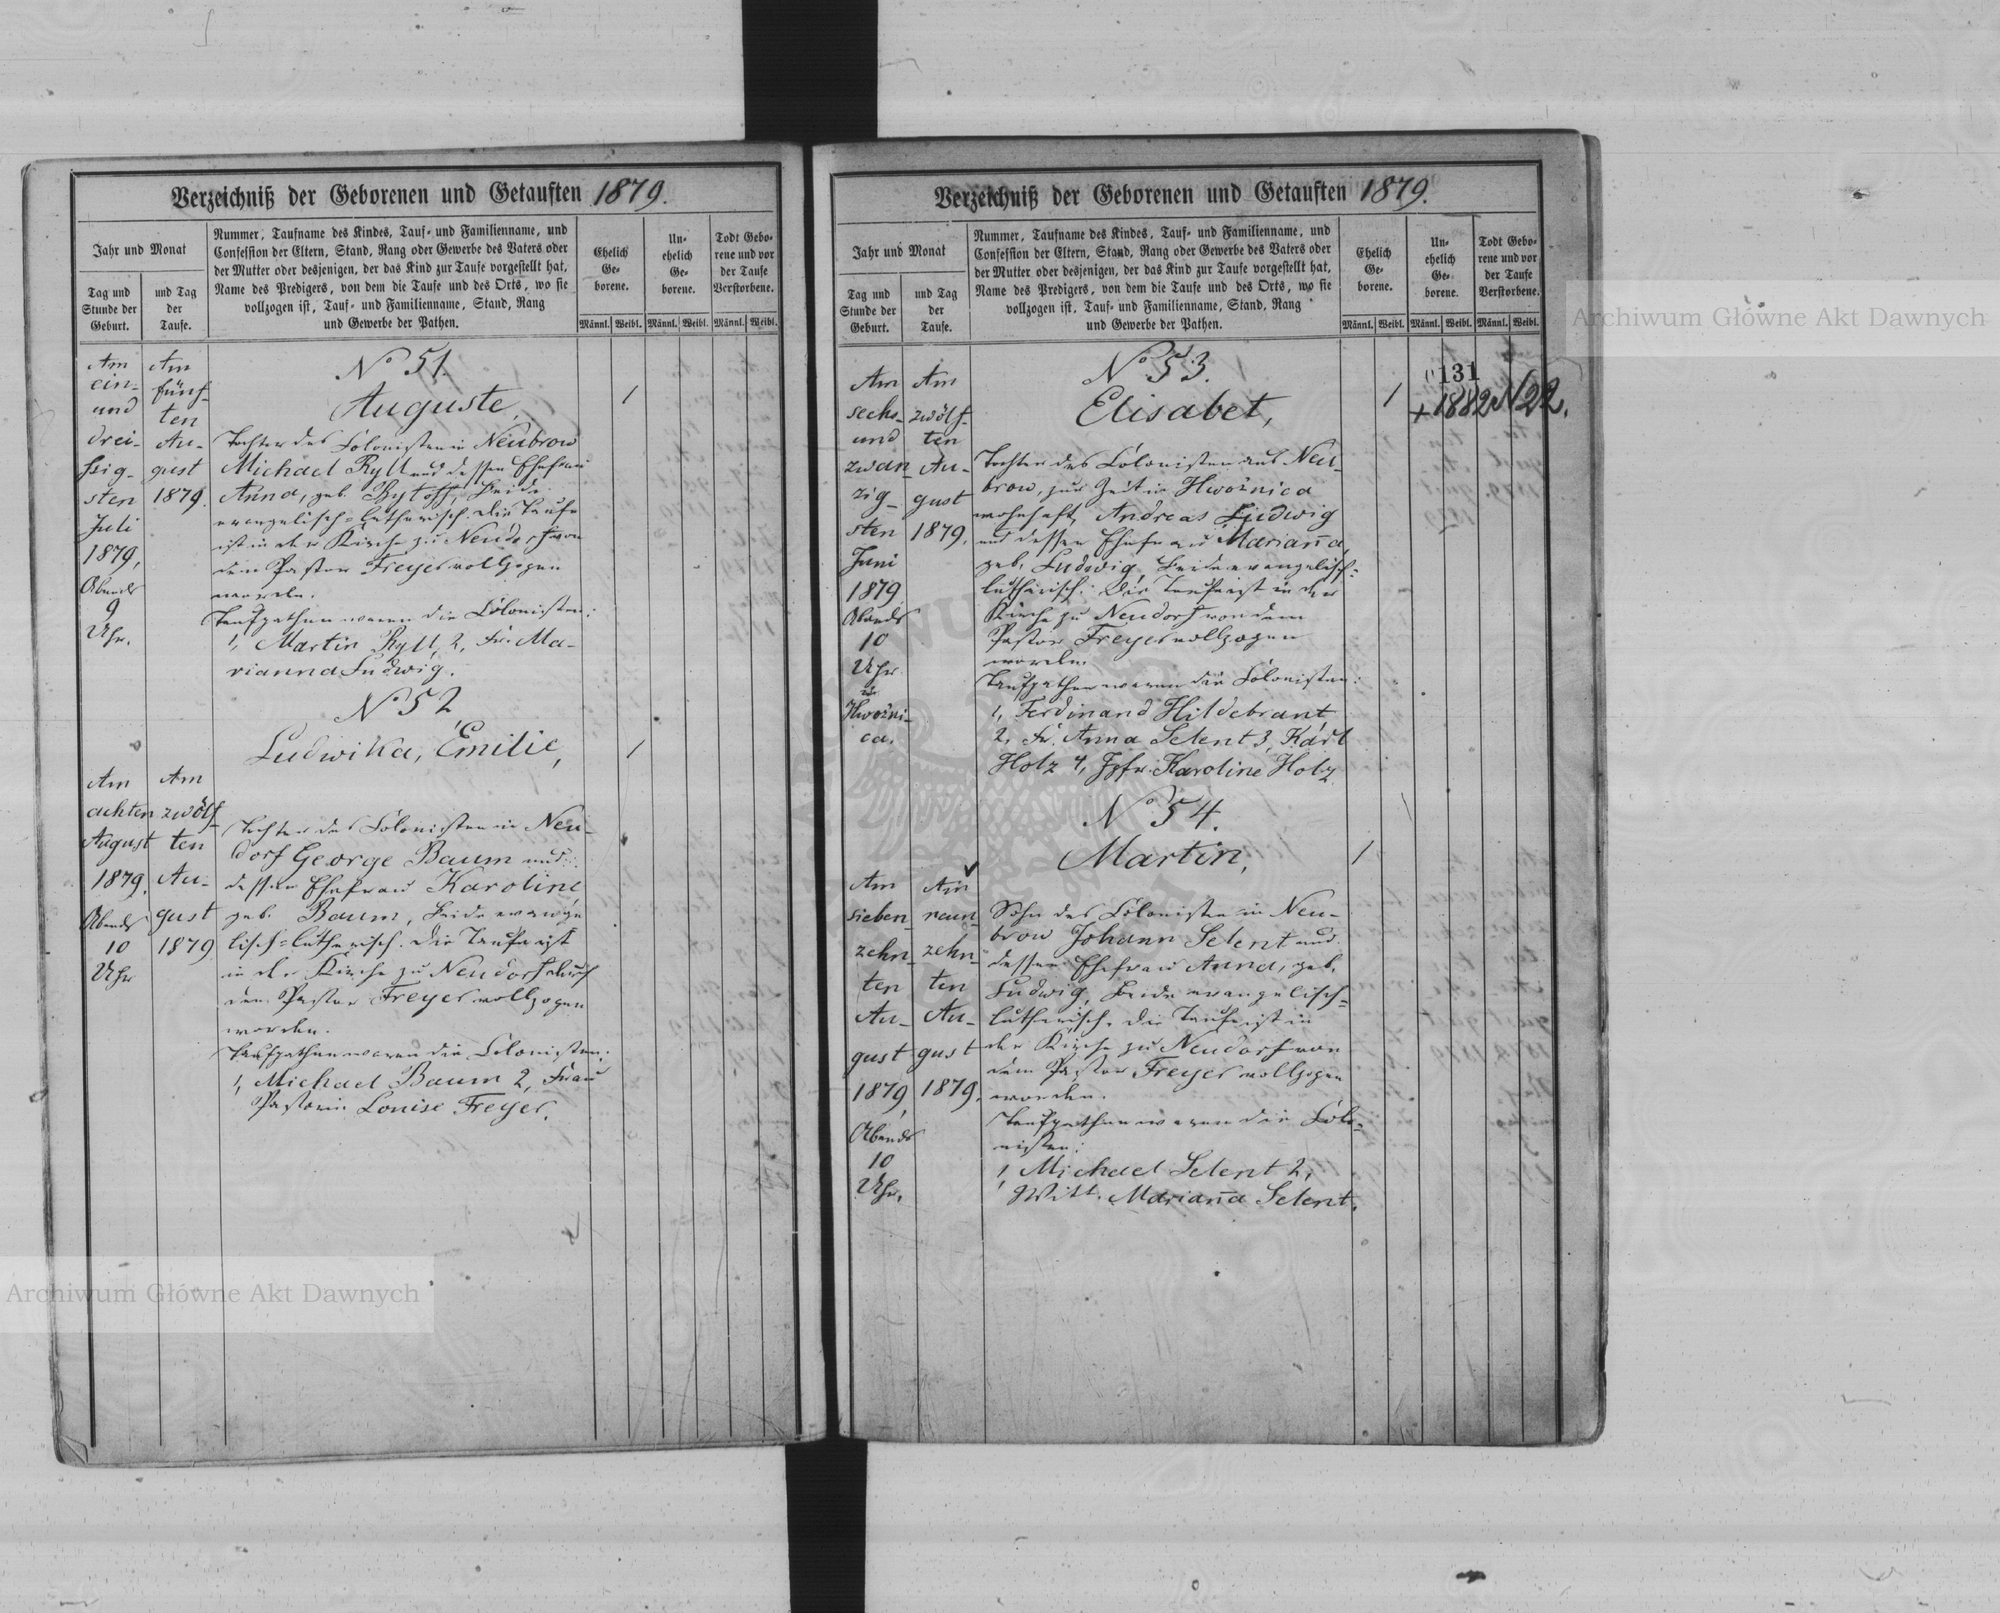 Verzeichniß der Geborenen und Getauften 1879.
Jahr und Monat
Tag und
Stunde der
Geburt.
und Tag
der
Taufe.
Nummer, Taufname des Kindes, Tauf- und Familienname, und
Confession der Eltern, Stand, Rang oder Gewerbe des Vaters oder
der Mutter oder desjenigen, der das Kind zur Taufe vorgestellt hat,
Name des Predigers, von dem die Taufe und des Orts, wo sie
vollzogen ist, Tauf- und Familienname, Stand, Rang
und Gewerbe der Pathen.
Ehelich
Ge-
borene.
Un-
ehelich
Ge-
borene.
Todt Gebo-
rene und vor
der Taufe
Verstorbene.
Männl. Weibl. Männl. Weibl. Männl. Weibl.
Am
ein-
und
drei-
ssig-
sten
Juli
1879,
Abends
9
Uhr.
Am
fünf-
ten
Au-
gust
1879.
No 51.
Auguste,
1
Tochter des Colonisten in Neubrow
Michael Ryll und dessen Ehefrau
Anna, geb. Rytoff, beide
evangelisch-lutherisch. Die Taufe
ist in der Kirche zu Neudorf von
dem Pastor Freyer vollzogen
worden.
Taufpathen waren die Colonisten:
1, Martin Ryll, 2, Fr. Ma-
rianna Ludwig.
No 52
Ludwika, Emilie,
1
Am
achten
August
1879.
Abends
10
Uhr
Am
zwölf-
ten
Au-
gust
1879
Tochter des Colonisten in Neu-
dorf George Baum und
dessen Ehefrau Karoline
geb. Baum, beide evange-
lisch-lutherisch. Die Taufe ist
in der Kirche zu Neudorf durch
den Pastor Freyer vollzogen
worden.
Taufpathen waren die Colonisten:
1, Michael Baum 2, Frau
Pastorin Louise Freyer.
Verzeichniß der Geborenen und Getauften 1879.
Jahr und Monat
Tag und
Stunde der
Geburt.
und Tag
der
Taufe.
Nummer, Taufname des Kindes, Tauf- und Familienname, und
Confession der Eltern, Stand, Rang oder Gewerbe des Vaters oder
der Mutter oder desjenigen, der das Kind zur Taufe vorgestellt hat,
Name des Predigers, von dem die Taufe und des Orts, wo sie
vollzogen ist, Tauf- und Familienname, Stand, Rang
und Gewerbe der Pathen.
Ehelich
Ge-
borene.
Un-
ehelich
Ge-
borene.
Todt Gebo-
rene und vor
der Taufe
Verstorbene.
Männl. Weibl. Männl. Weibl. Männl. Weibl.
131
+1882 N 22.
Am
sechs-
und
zwan
zig-
sten
Juni
1879
Abends
10
Uhr
zu
Hwożni-
ca.
Am
zwölf-
ten
Au-
gust
1879.
No 53.
Elisabet,
1
Tochter des Colonisten aus Neu-
brow, zur Zeit in Hwożnica
wohnhaft, Andreas Ludwig
und dessen Ehefrau Marianna,
geb. Ludwig, beide evangelisch-
lutherisch. Die Taufe ist in der
Kirche zu Neudorf von dem
Pastor Freyer vollzogen
worden.
Taufpathen waren die Colonisten:
1, Ferdinand Hildebrant
2, Fr. Anna Selent 3, Karl
Holz 4, Jgfr. Karoline Holz
No 54.
Martin,
1
Am
sieben-
zehn-
ten
Au-
gust
1879,
Abends
10
Uhr.
Am
neun-
zehn-
ten
Au-
gust
1879.
Sohn des Colonisten in Neu-
brow Johann Selent und
dessen Ehefrau Anna, geb.
Ludwig, beide evangelisch-
lutherisch. Die Taufe ist in
der Kirche zu Neudorf von
dem Pastor Freyer vollzogen
worden.
Taufpathen waren die Colo-
nisten:
1, Michael Selent 2,
Witt. Marianna Selent.
Archiwum Główne Akt Dawnych
Archiwum Główne Akt Dawnych